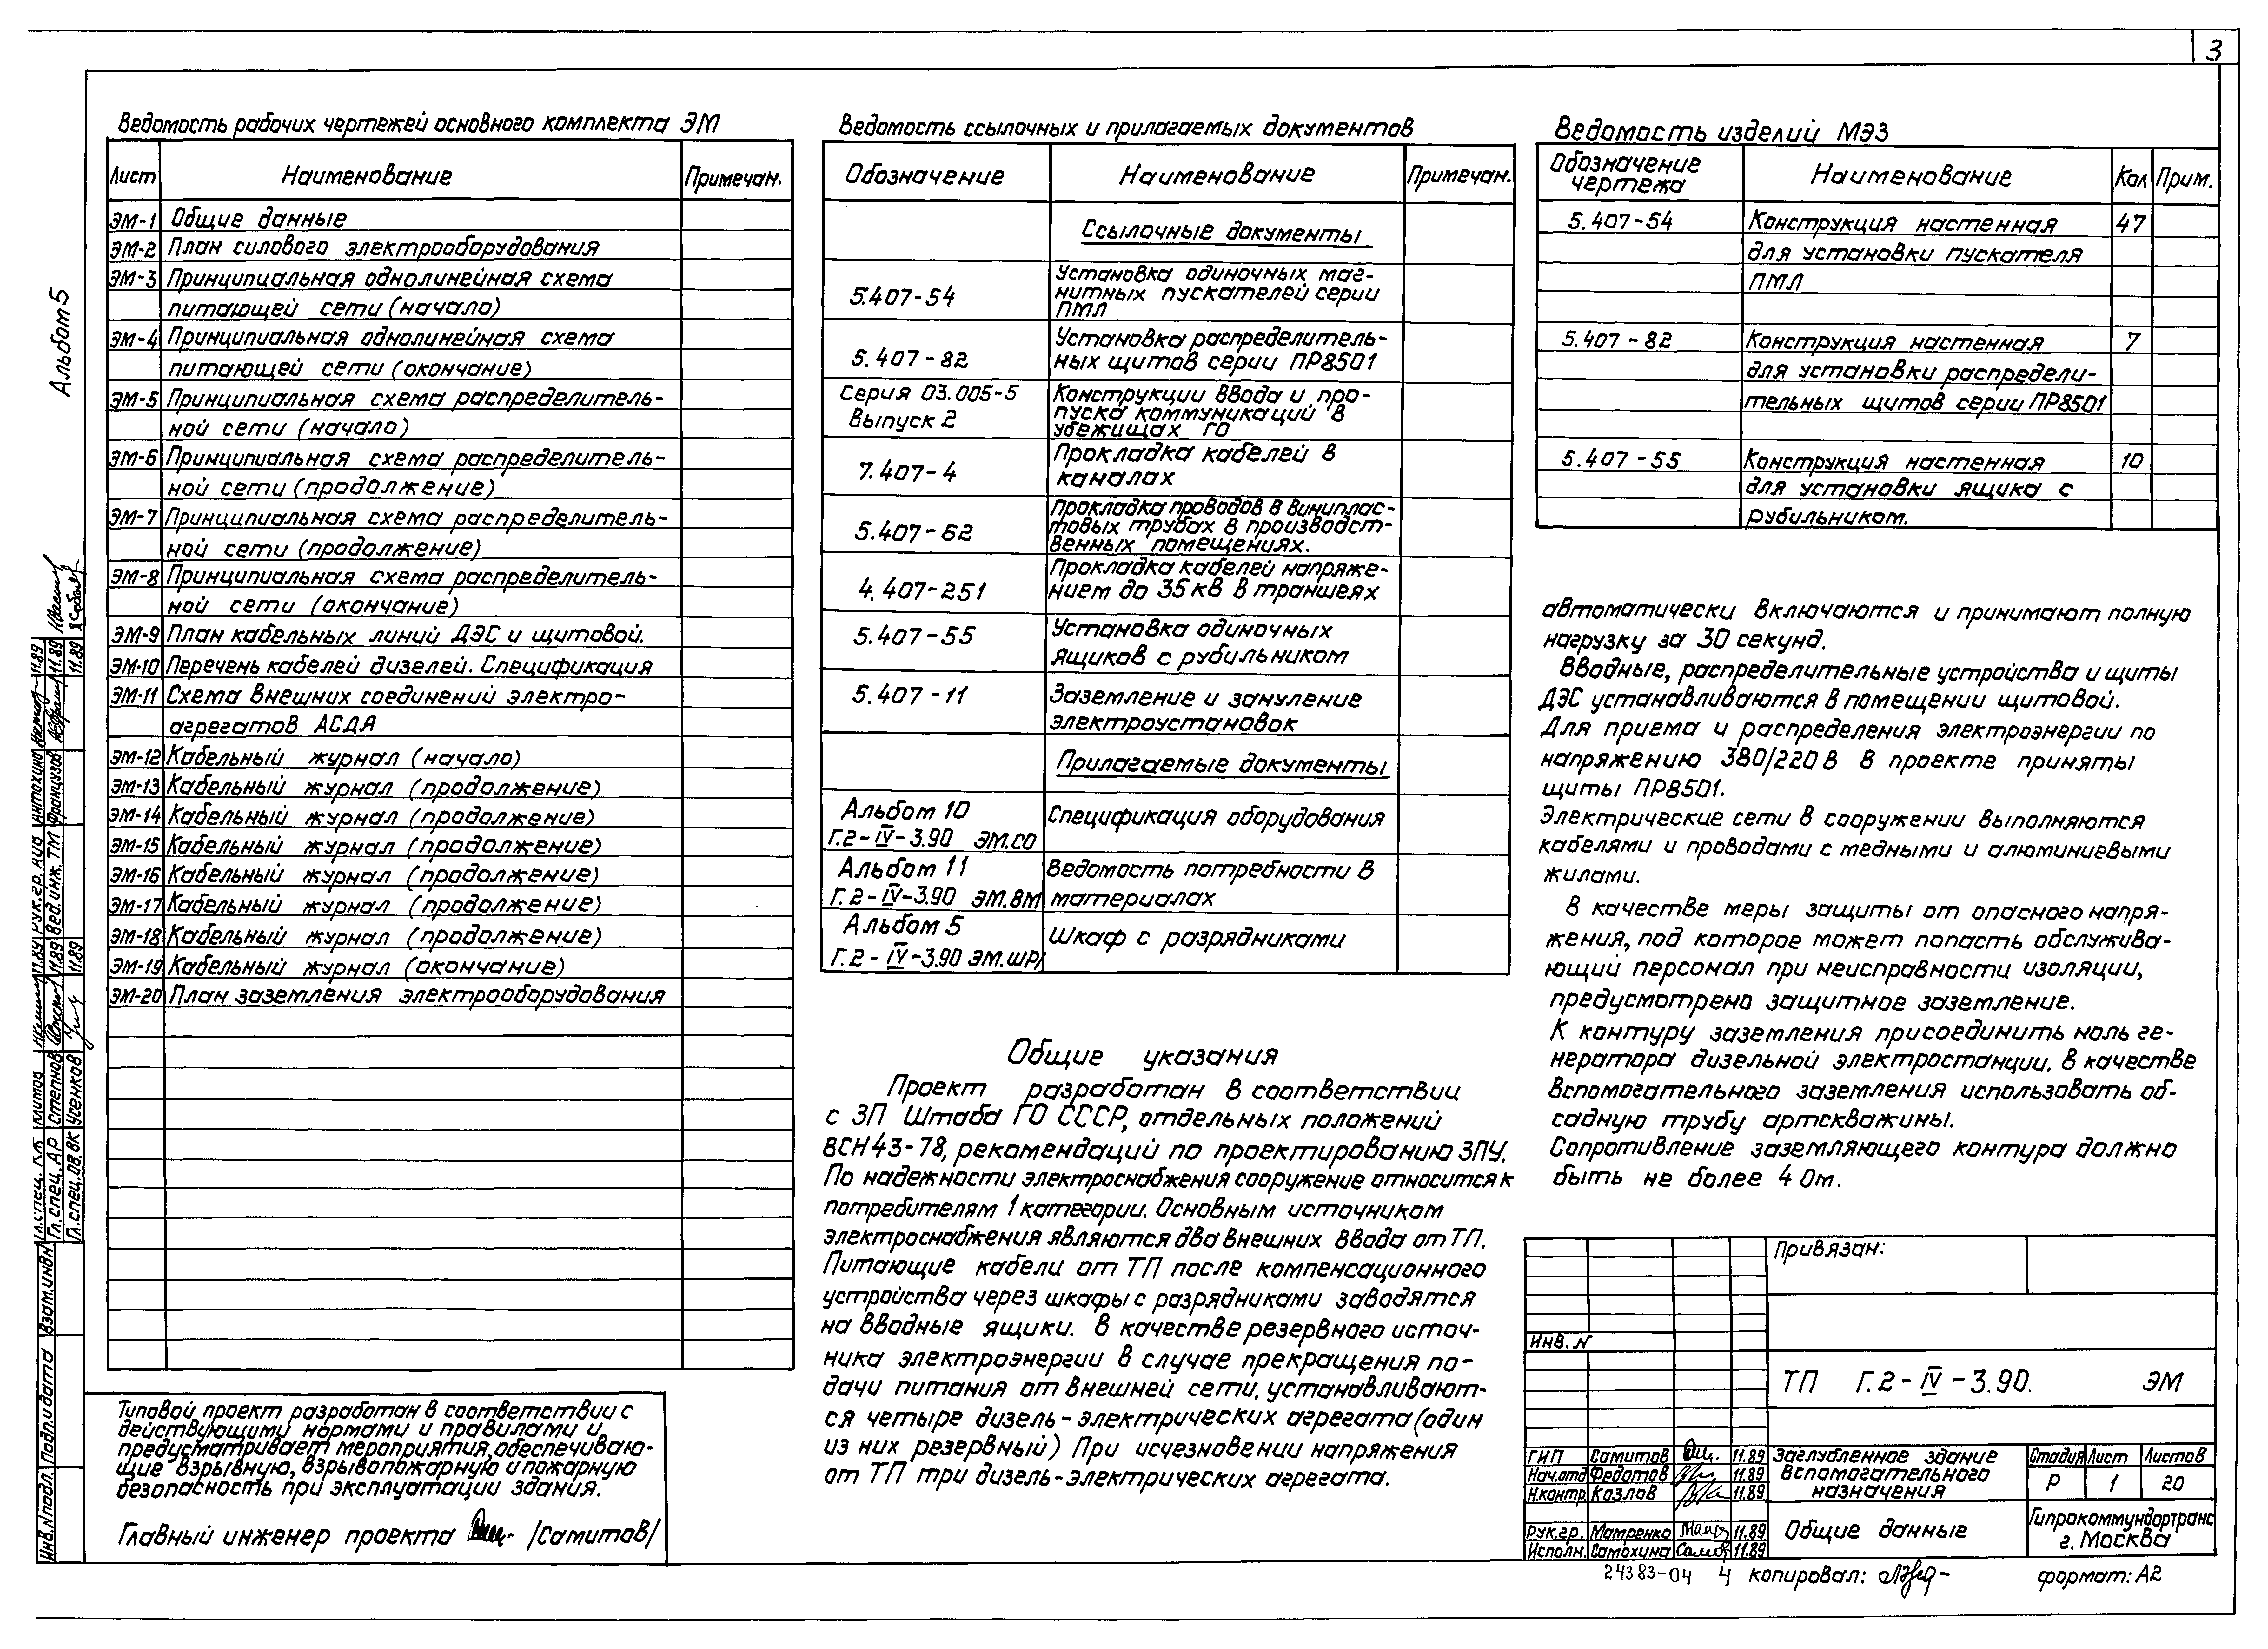 3
Альбом 5
Ведомость рабочих чертежей основного комплекта ЭМ
Лист Наименование Примечан.
ЭМ-1 Общие данные
ЭМ-2 План силового электрооборудования
ЭМ-3 Принципиальная однолинейная схема
питающей сети (начало)
ЭМ-4 Принципиальная однолинейная схема
питающей сети (окончание)
ЭМ-5 Принципиальная схема распределитель-
ной сети (начало)
ЭМ-6 Принципиальная схема распределитель-
ной сети (продолжение)
ЭМ-7 Принципиальная схема распределитель-
ной сети (продолжение)
ЭМ-8 Принципиальная схема распределитель-
ной сети (окончание)
ЭМ-9 План кабельных линий ДЭС и щитовой.
ЭМ-10 Перечень кабелей дизелей. Спецификация
ЭМ-11 Схема внешних соединений электро-
агрегатов АСДА
ЭМ-12 Кабельный журнал (начало)
ЭМ-13 Кабельный журнал (продолжение)
ЭМ-14 Кабельный журнал (продолжение)
ЭМ-15 Кабельный журнал (продолжение)
ЭМ-16 Кабельный журнал (продолжение)
ЭМ-17 Кабельный журнал (продолжение)
ЭМ-18 Кабельный журнал (продолжение)
ЭМ-19 Кабельный журнал (окончание)
ЭМ-20 План заземления электрооборудования
Типовой проект разработан в соответствии с
действующими нормами и правилами и
предусматривает мероприятия, обеспечиваю-
щие взрывную, взрывопожарную и пожарную
безопасность при эксплуатации здания.
Главный инженер проекта /Самитов/
Ведомость ссылочных и прилагаемых документов
Обозначение Наименование Примечан.
Ссылочные документы
5.407-54 Установка одиночных маг-
нитных пускателей серии
ПМЛ
5.407-82 Установка распределитель-
ных щитов серии ПР8501
Серия 03.005-5 Конструкции ввода и про-
Выпуск 2 пуска коммуникаций в
убежищах ГО
7.407-4 Прокладка кабелей в
каналах
5.407-62 Прокладка проводов в винилплас-
товых трубах в производст-
венных помещениях.
4.407-251 Прокладка кабелей напряже-
нием до 35 кВ в траншеях
5.407-55 Установка одиночных
ящиков с рубильником
5.407-11 Заземление и зануление
электроустановок
Прилагаемые документы
Альбом 10 Спецификация оборудования
Г.2-IV-3.90 ЭМ.СО
Альбом 11 Ведомость потребности в
Г.2-IV-3.90 ЭМ.ВМ материалах
Альбом 5 Шкаф с разрядниками
Г.2-IV-3.90 ЭМ.ШР1
Общие указания
Проект разработан в соответствии
с ЗП Штаба ГО СССР, отдельных положений
ВСН 43-78, рекомендаций по проектированию ЗПУ.
По надежности электроснабжения сооружение относится к
потребителям 1 категории. Основным источником
электроснабжения являются два внешних ввода от ТП.
Питающие кабели от ТП после компенсационного
устройства через шкафы с разрядниками заводятся
на вводные ящики. В качестве резервного источ-
ника электроэнергии в случае прекращения по-
дачи питания от внешней сети, устанавливают-
ся четыре дизель-электрических агрегата (один
из них резервный) При исчезновении напряжения
от ТП три дизель-электрических агрегата.
Ведомость изделий МЭЗ
Обозначение чертежа Наименование Кол Прим.
5.407-54 Конструкция настенная 47
для установки пускателя
ПМЛ
5.407-82 Конструкция настенная 7
для установки распредели-
тельных щитов серии ПР8501
5.407-55 Конструкция настенная 10
для установки ящика с
рубильником.
автоматически включаются и принимают полную
нагрузку за 30 секунд.
Вводные, распределительные устройства и щиты
ДЭС устанавливаются в помещении щитовой.
Для приема и распределения электроэнергии по
напряжению 380/220 В в проекте приняты
щиты ПР8501.
Электрические сети в сооружении выполняются
кабелями и проводами с медными и алюминиевыми
жилами.
В качестве меры защиты от опасного напря-
жения, под которое может попасть обслужива-
ющий персонал при неисправности изоляции,
предусмотрено защитное заземление.
К контуру заземления присоединить ноль ге-
нератора дизельной электростанции. В качестве
вспомогательного заземления использовать об-
садную трубу артскважины.
Сопротивление заземляющего контура должно
быть не более 4 Ом.
Привязан:
Инв. N
ТП Г.2-IV-3.90. ЭМ
ГИП Самитов 11.89
Нач.отд Федотов 11.89
Н.контр. Козлов 11.89
Рук.гр. Матренко 11.89
Исполн. Самохина 11.89
Заглубленное здание
вспомогательного
назначения
Стадия Лист Листов
Р 1 20
Общие данные
Гипрокоммундортранс
г. Москва
24383-04 4 копировал: формат: А2
Гл.спец. КЖ Климов 11.89 Рук.гр. АИВ Антохина 11.89
Гл.спец. АР Степнов 11.89 Вед.инж. ТМ Французов 11.89
Гл.спец.ОВ.ВК Усенков 11.89 11.89
Инв.N подл. Подп.и дата Взам.инв.N